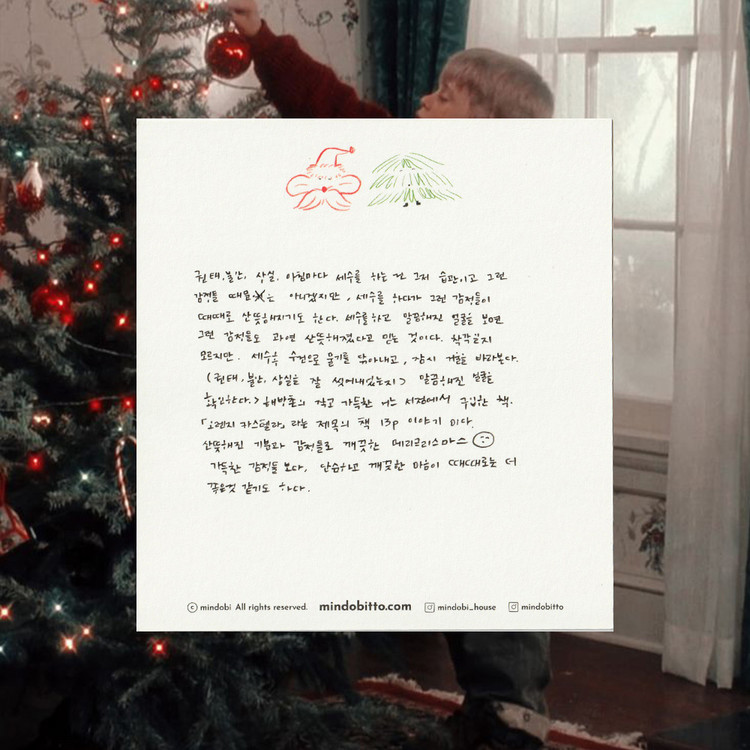 권태, 불안, 상실. 아침마다 세수를 하는 건 그저 습관이고 그런
감정들 때문에는 아니겠지만, 세수를 하다가 그런 감정들이
때때로 산뜻해지기도 한다. 세수를 하고 말끔해진 얼굴을 보면
그런 감정들도 과연 산뜻해졌다고 믿는 것이다. 착각일지
모르지만. 세수 후 수건으로 물기를 닦아내고, 잠시 거울을 바라본다.
(권태, 불안, 상실을 잘 씻어내었는지) 말끔해진 얼굴을
확인한다.> 해방촌의 작고 가득한 서점에서 구입한 책.
「오렌지 카스텔라」라는 제목의 책 13p 이야기 이다.
산뜻해진 기분과 감정들로 깨끗한 메리크리스마스
가득한 감정들 보다, 단순하고 깨끗한 마음이 때때로는 더
좋을것 같기도 하다.
© mindobi All rights reserved. mindobitto.com mindobi_house mindobitto